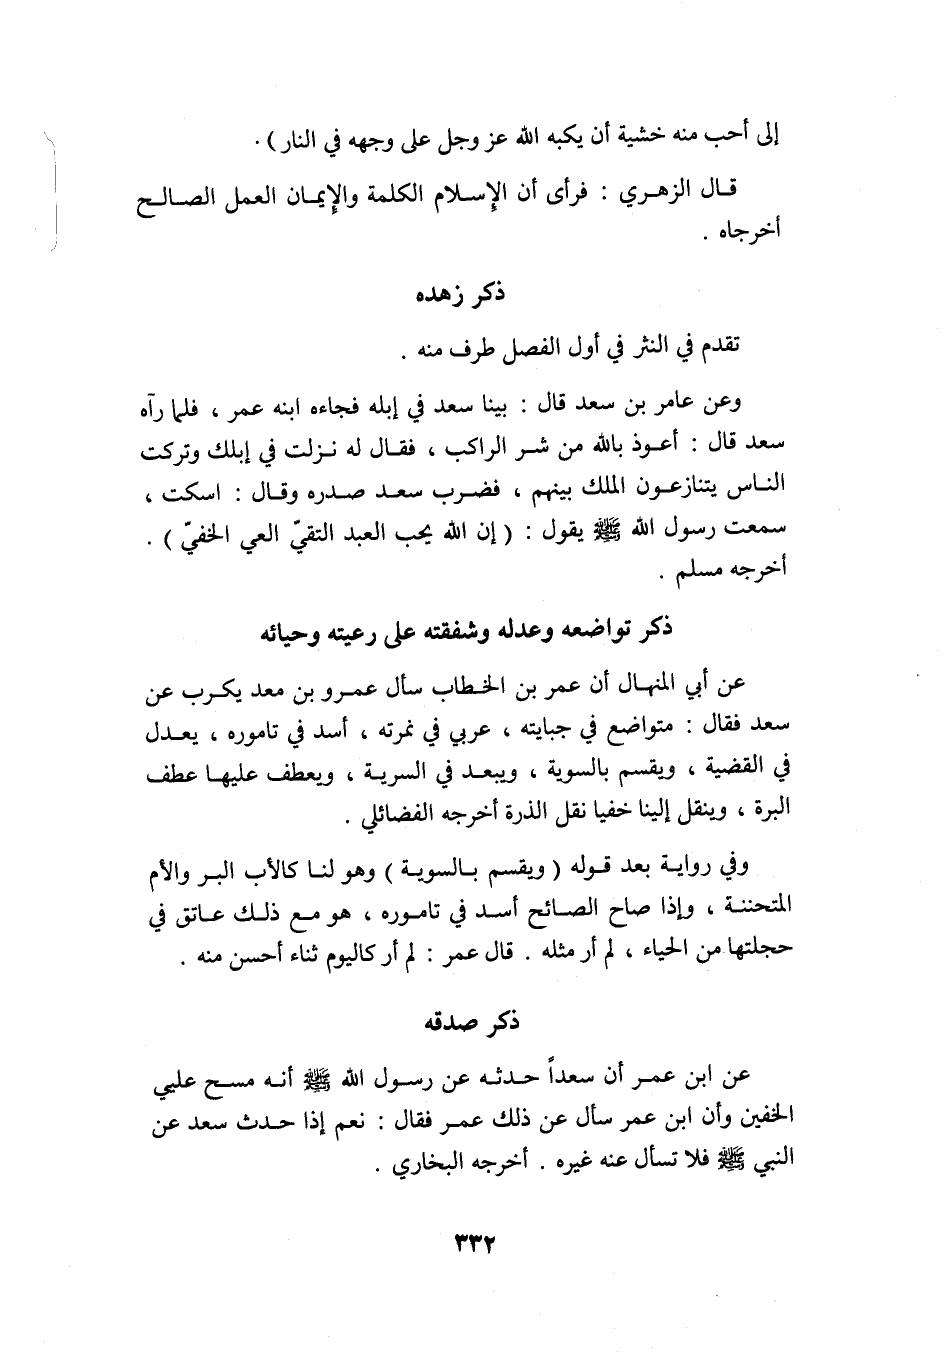 إلى أحب منه خشية أن يكبه الله عز وجل على وجهه في النار) .
قال الزهري : فرأى أن الإسلام الكلمة والإيمان العمل الصالح
أخرجاه .
ذكر زهده
تقدم في النثر في أول الفصل طرف منه .
وعن عامر بن سعد قال : بينا سعد في إبله فجاءه ابنه عمر ، فلما رآه
سعد قال : أعوذ بالله من شر الراكب ، فقال له نزلت في إبلك وتركت
الناس يتنازعون الملك بينهم ، فضرب سعد صدره وقال : اسكت ،
سمعت رسول الله ﷺ يقول : ( إن الله يحب العبد التقيّ العي الخفيّ ) .
أخرجه مسلم .
ذكر تواضعه وعدله وشفقته على رعيته وحيائه
عن أبي المنهال أن عمر بن الخطاب سأل عمرو بن معد يكرب عن
سعد فقال : متواضع في جبايته ، عربي في نمرته ، أسد في تاموره ، يعدل
في القضية ، ويقسم بالسوية ، ويبعد في السرية ، ويعطف عليها عطف
البرة ، وينقل إلينا خفيا نقل الذرة أخرجه الفضائلي .
وفي رواية بعد قوله ( ويقسم بالسوية ) وهو لنا كالأب البر والأم
المتحننة ، وإذا صاح الصائح أسد في تاموره ، هو مع ذلك عاتق في
حجلتها من الحياء ، لم أر مثله . قال عمر : لم أر كاليوم ثناء أحسن منه .
ذكر صدقه
عن ابن عمر أن سعداً حدثه عن رسول الله ﷺ أنه مسح عليي
الخفين وأن ابن عمر سأل عن ذلك عمر فقال : نعم إذا حدث سعد عن
النبي ﷺ فلا تسأل عنه غيره . أخرجه البخاري .
٣٣٢